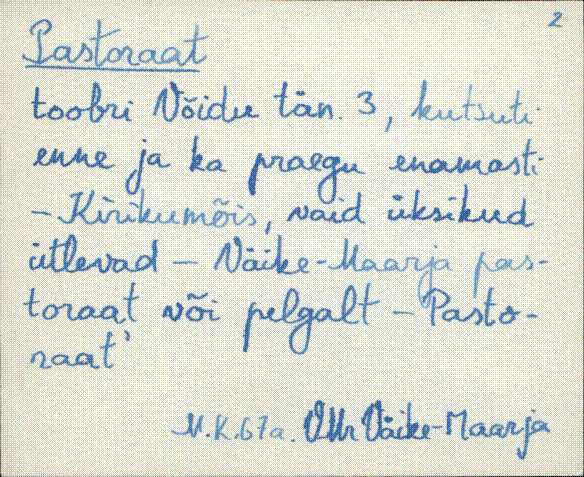 2
Pastoraat
toobri Võidu tän. 3, kutsuti
enne ja ka praegu enamasti
– Kirikumõis, vaid üksikud
ütlevad – Väike-Maarja pas-
toraat või pelgalt – 'Pasto-
raat'
M.K.67a. VMr Väike-Maarja